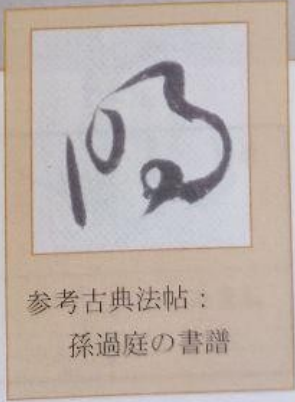 明
参考古典法帖：
孫過庭の書譜